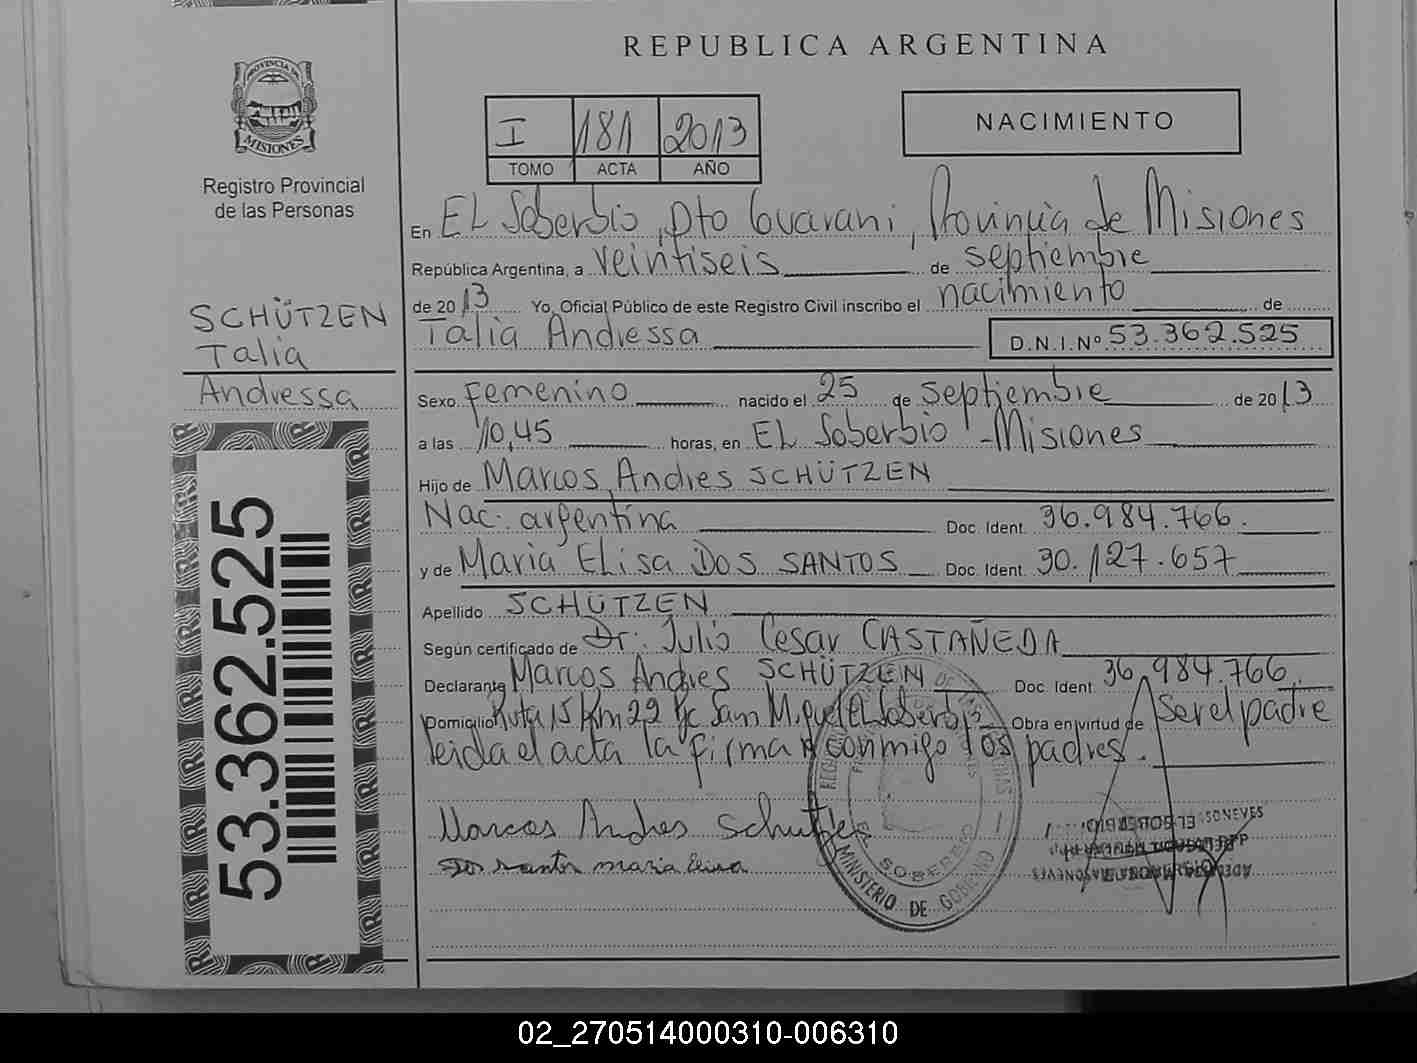 REPUBLICA ARGENTINA
PROVINCIA DE
MISIONES
Registro Provincial
de las Personas
I 181 2013
TOMO ACTA AÑO
NACIMIENTO
En EL Soberbio, Dto Guarani, Provincia de Misiones
República Argentina, a veintiseis de septiembre
de 2013 Yo, Oficial Público de este Registro Civil inscribo el nacimiento de
Talia Andressa D.N.I.Nº 53.362.525
SCHÜTZEN
Talia
Andressa
Sexo femenino nacido el 25 de septiembre de 2013
a las 10,45 horas, en EL Soberbio - Misiones
Hijo de Marcos Andres SCHÜTZEN
Nac. argentina Doc. Ident. 36.984.766.
y de Maria Elisa Dos SANTOS Doc. Ident. 30.127.657
Apellido SCHÜTZEN
Según certificado de Dr: Julio Cesar CASTAÑEDA
Declarante Marcos Andres SCHÜTZEN Doc. Ident. 36.984.766
Domicilio Ruta 15 Km 22 San Miguel El Soberbio Obra en virtud de Ser el padre
leida el acta la firman conmigo los padres.
Marcos Andres Schutzen
Dos santos maria elisa
EL SOBERBIO
MINISTERIO DE GOBIERNO
53.362.525
02_270514000310-006310